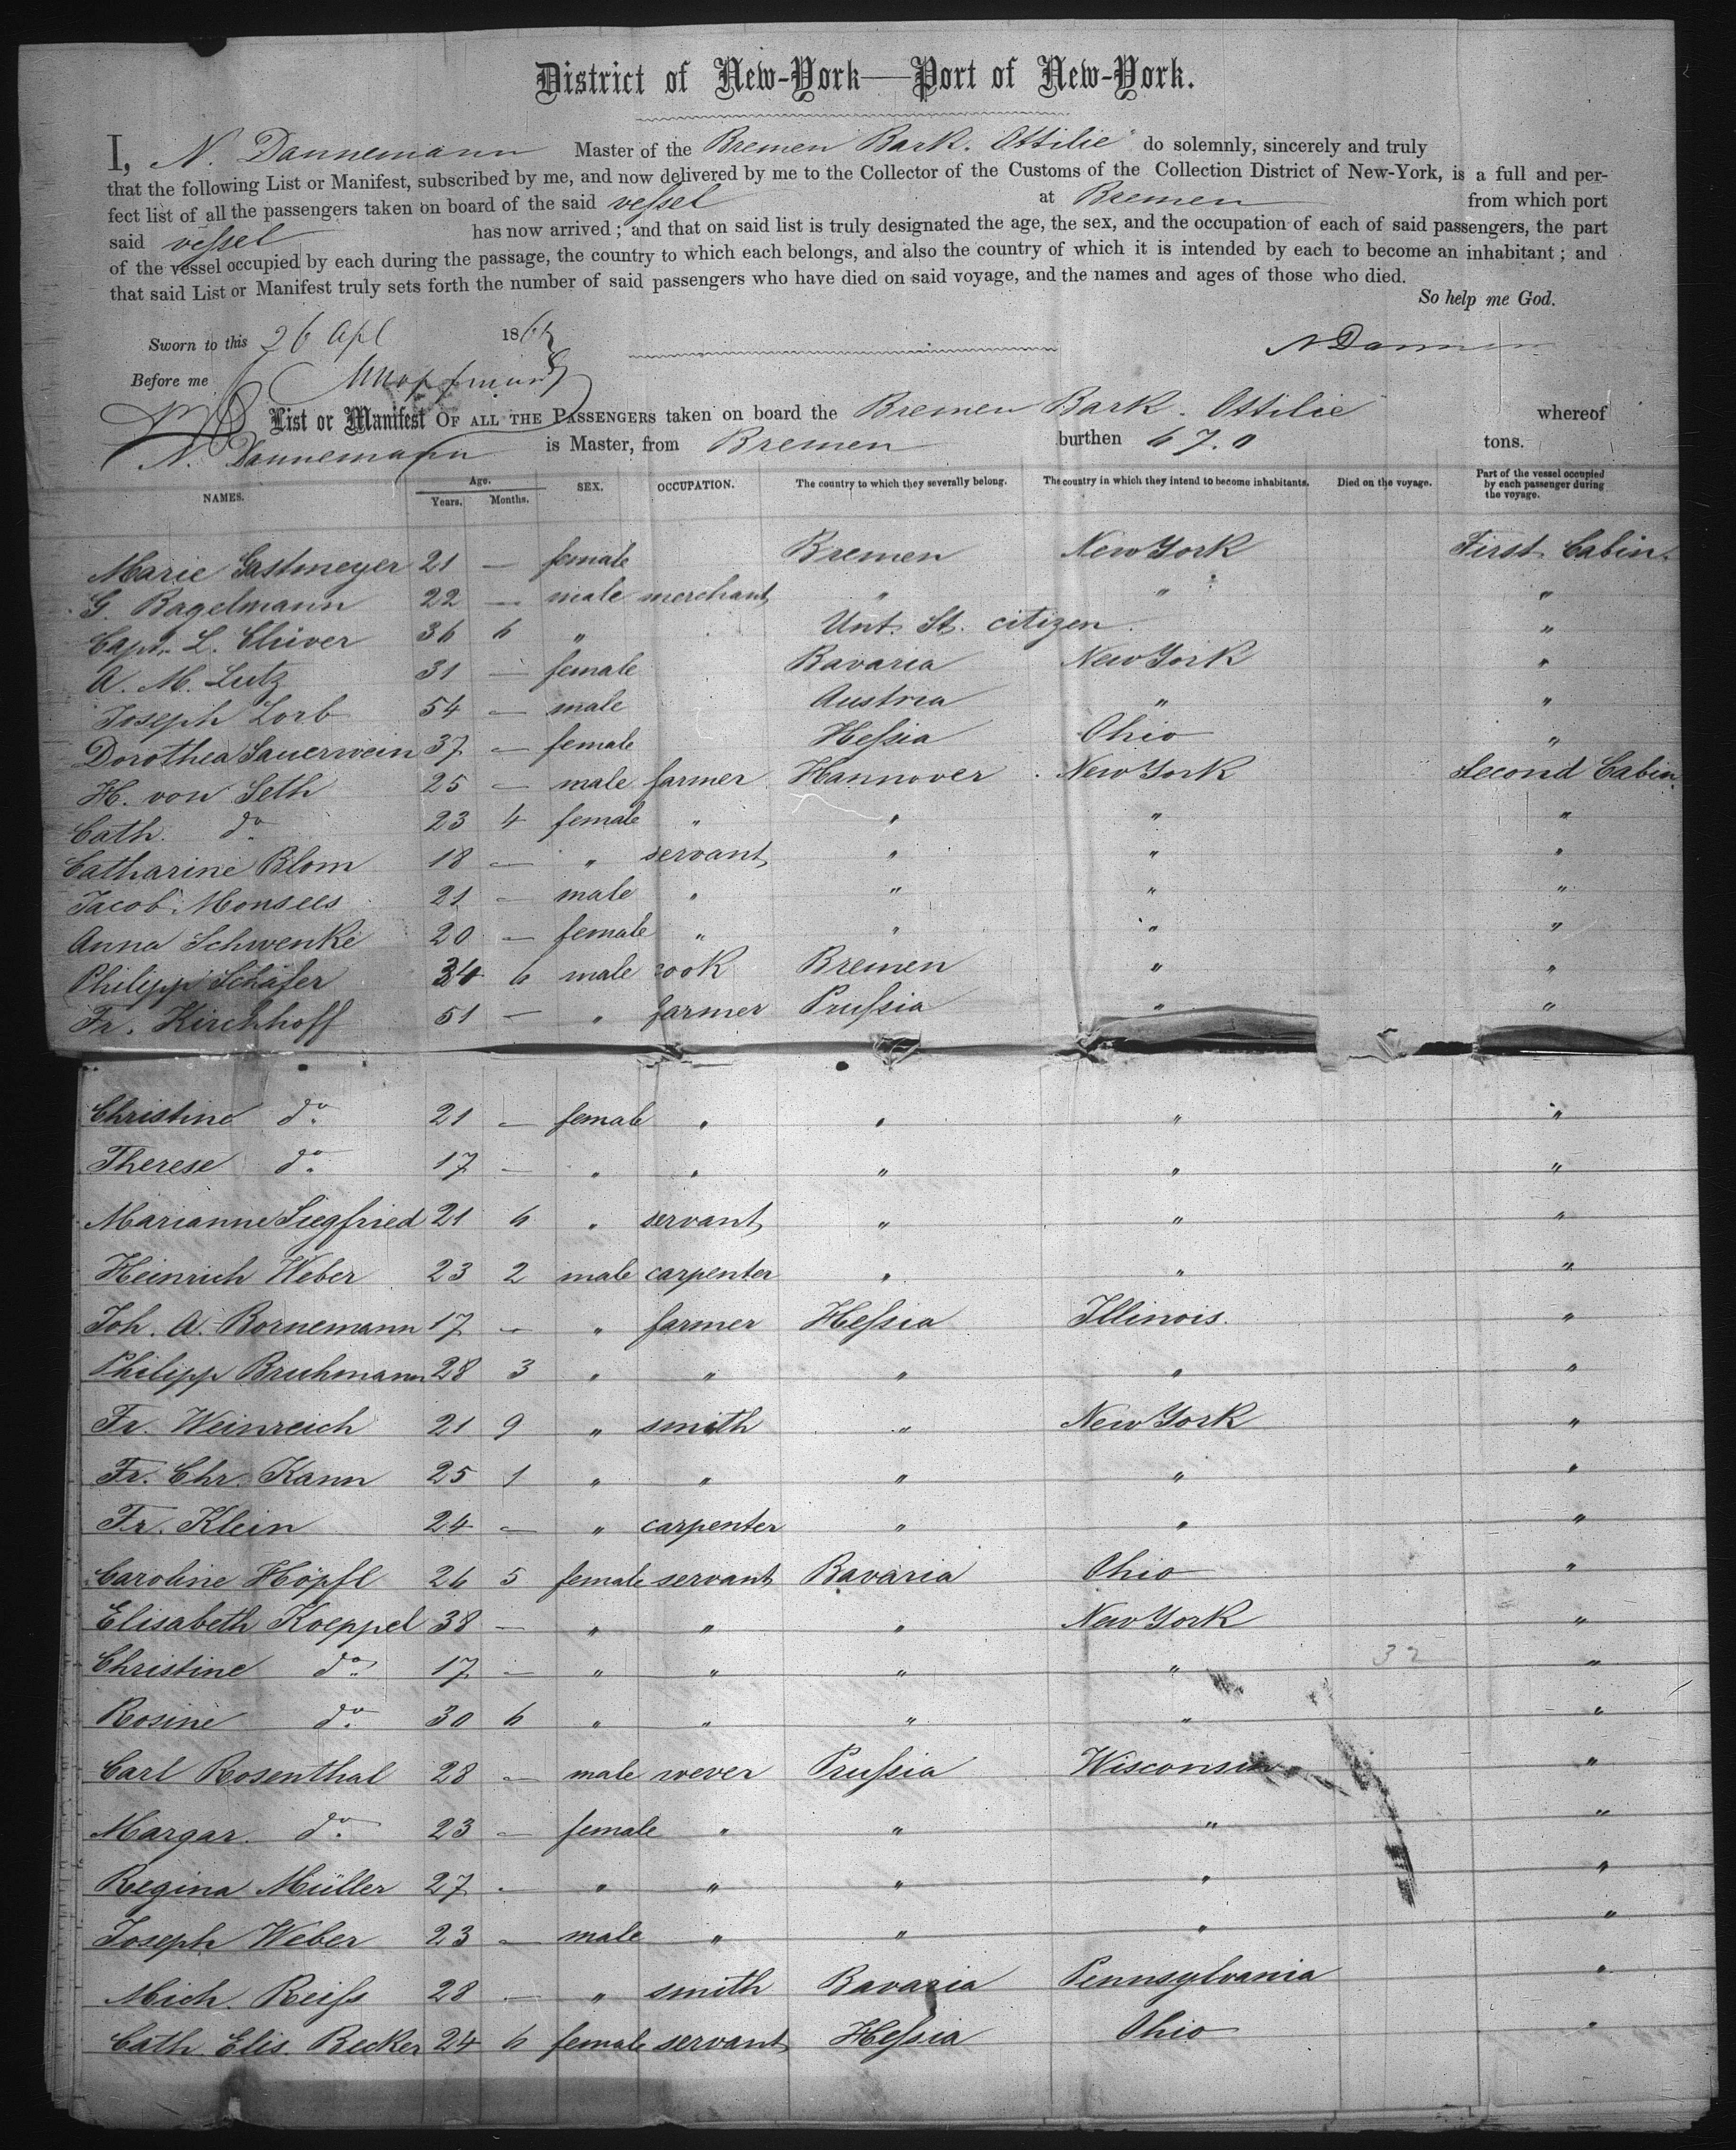 District of New-York—Port of New-York.
I, N. Dannemann Master of the Bremen Bark. Ottilie do solemnly, sincerely and truly
that the following List or Manifest, subscribed by me, and now delivered by me to the Collector of the Customs of the Collection District of New-York, is a full and per-
fect list of all the passengers taken on board of the said vessel at Bremen from which port
said vessel has now arrived; and that on said list is truly designated the age, the sex, and the occupation of each of said passengers, the part
of the vessel occupied by each during the passage, the country to which each belongs, and also the country of which it is intended by each to become an inhabitant; and
that said List or Manifest truly sets forth the number of said passengers who have died on said voyage, and the names and ages of those who died.
So help me God.
Sworn to this 26 Apl 186 N Dannem
Before me
List or Manifest OF ALL THE PASSENGERS taken on board the Bremen Bark. Ottilie whereof
N. Dannemann is Master, from Bremen burthen 670 tons.
NAMES. Age. Years. Months. SEX. OCCUPATION. The country to which they severally belong. The country in which they intend to become inhabitants. Died on the voyage. Part of the vessel occupied by each passenger during the voyage.
Marie Gastmeyer 21 — female Bremen New York First Cabin.
G. Bagelmann 22 — male merchant " " "
Capt. L. Clüver 36 6 " Unt. St. citizen. "
A. M. Lutz 31 — female Bavaria New York "
Joseph Lorb 54 — male Austria " "
Dorothea Sauerwein 37 — female Hessia Ohio "
H. von Seth 25 — male farmer Hannover New York Second Cabin
Cath. do. 23 4 female " " " "
Catharine Blom 18 — " servant " " "
Jacob Monsees 21 — male " " " "
Anna Schwenke 20 — female " " " "
Philipp Schäfer 34 6 male cook Bremen " "
Fr. Kirchhoff 51 — " farmer Prussia " "
Christine do. 21 — female " " " "
Therese do. 17 — " " " " "
Marianne Siegfried 21 6 " servant " " "
Heinrich Weber 23 2 male carpenter " " "
Joh. A. Bornemann 17 — " farmer Hessia Illinois. "
Philipp Bruhmann 28 3 " " " " "
Fr. Weinreich 21 9 " smith " New York "
Fr. Chr. Kann 25 1 " " " " "
Fr. Klein 24 — " carpenter " " "
Caroline Höpfl 26 5 female servant Bavaria Ohio "
Elisabeth Koeppel 38 — " " " New York "
Christine do. 17 — " " " " 32 "
Rosine do. 30 6 " " " " "
Carl Rosenthal 28 — male wever Prussia Wisconsin "
Margar. do. 23 — female " " " "
Regina Müller 27 - " " " " "
Joseph Weber 23 — male " " " "
Mich. Reiss 28 — " smith Bavaria Pennsylvania "
Cath. Elis. Becker 24 6 female servant Hessia Ohio "